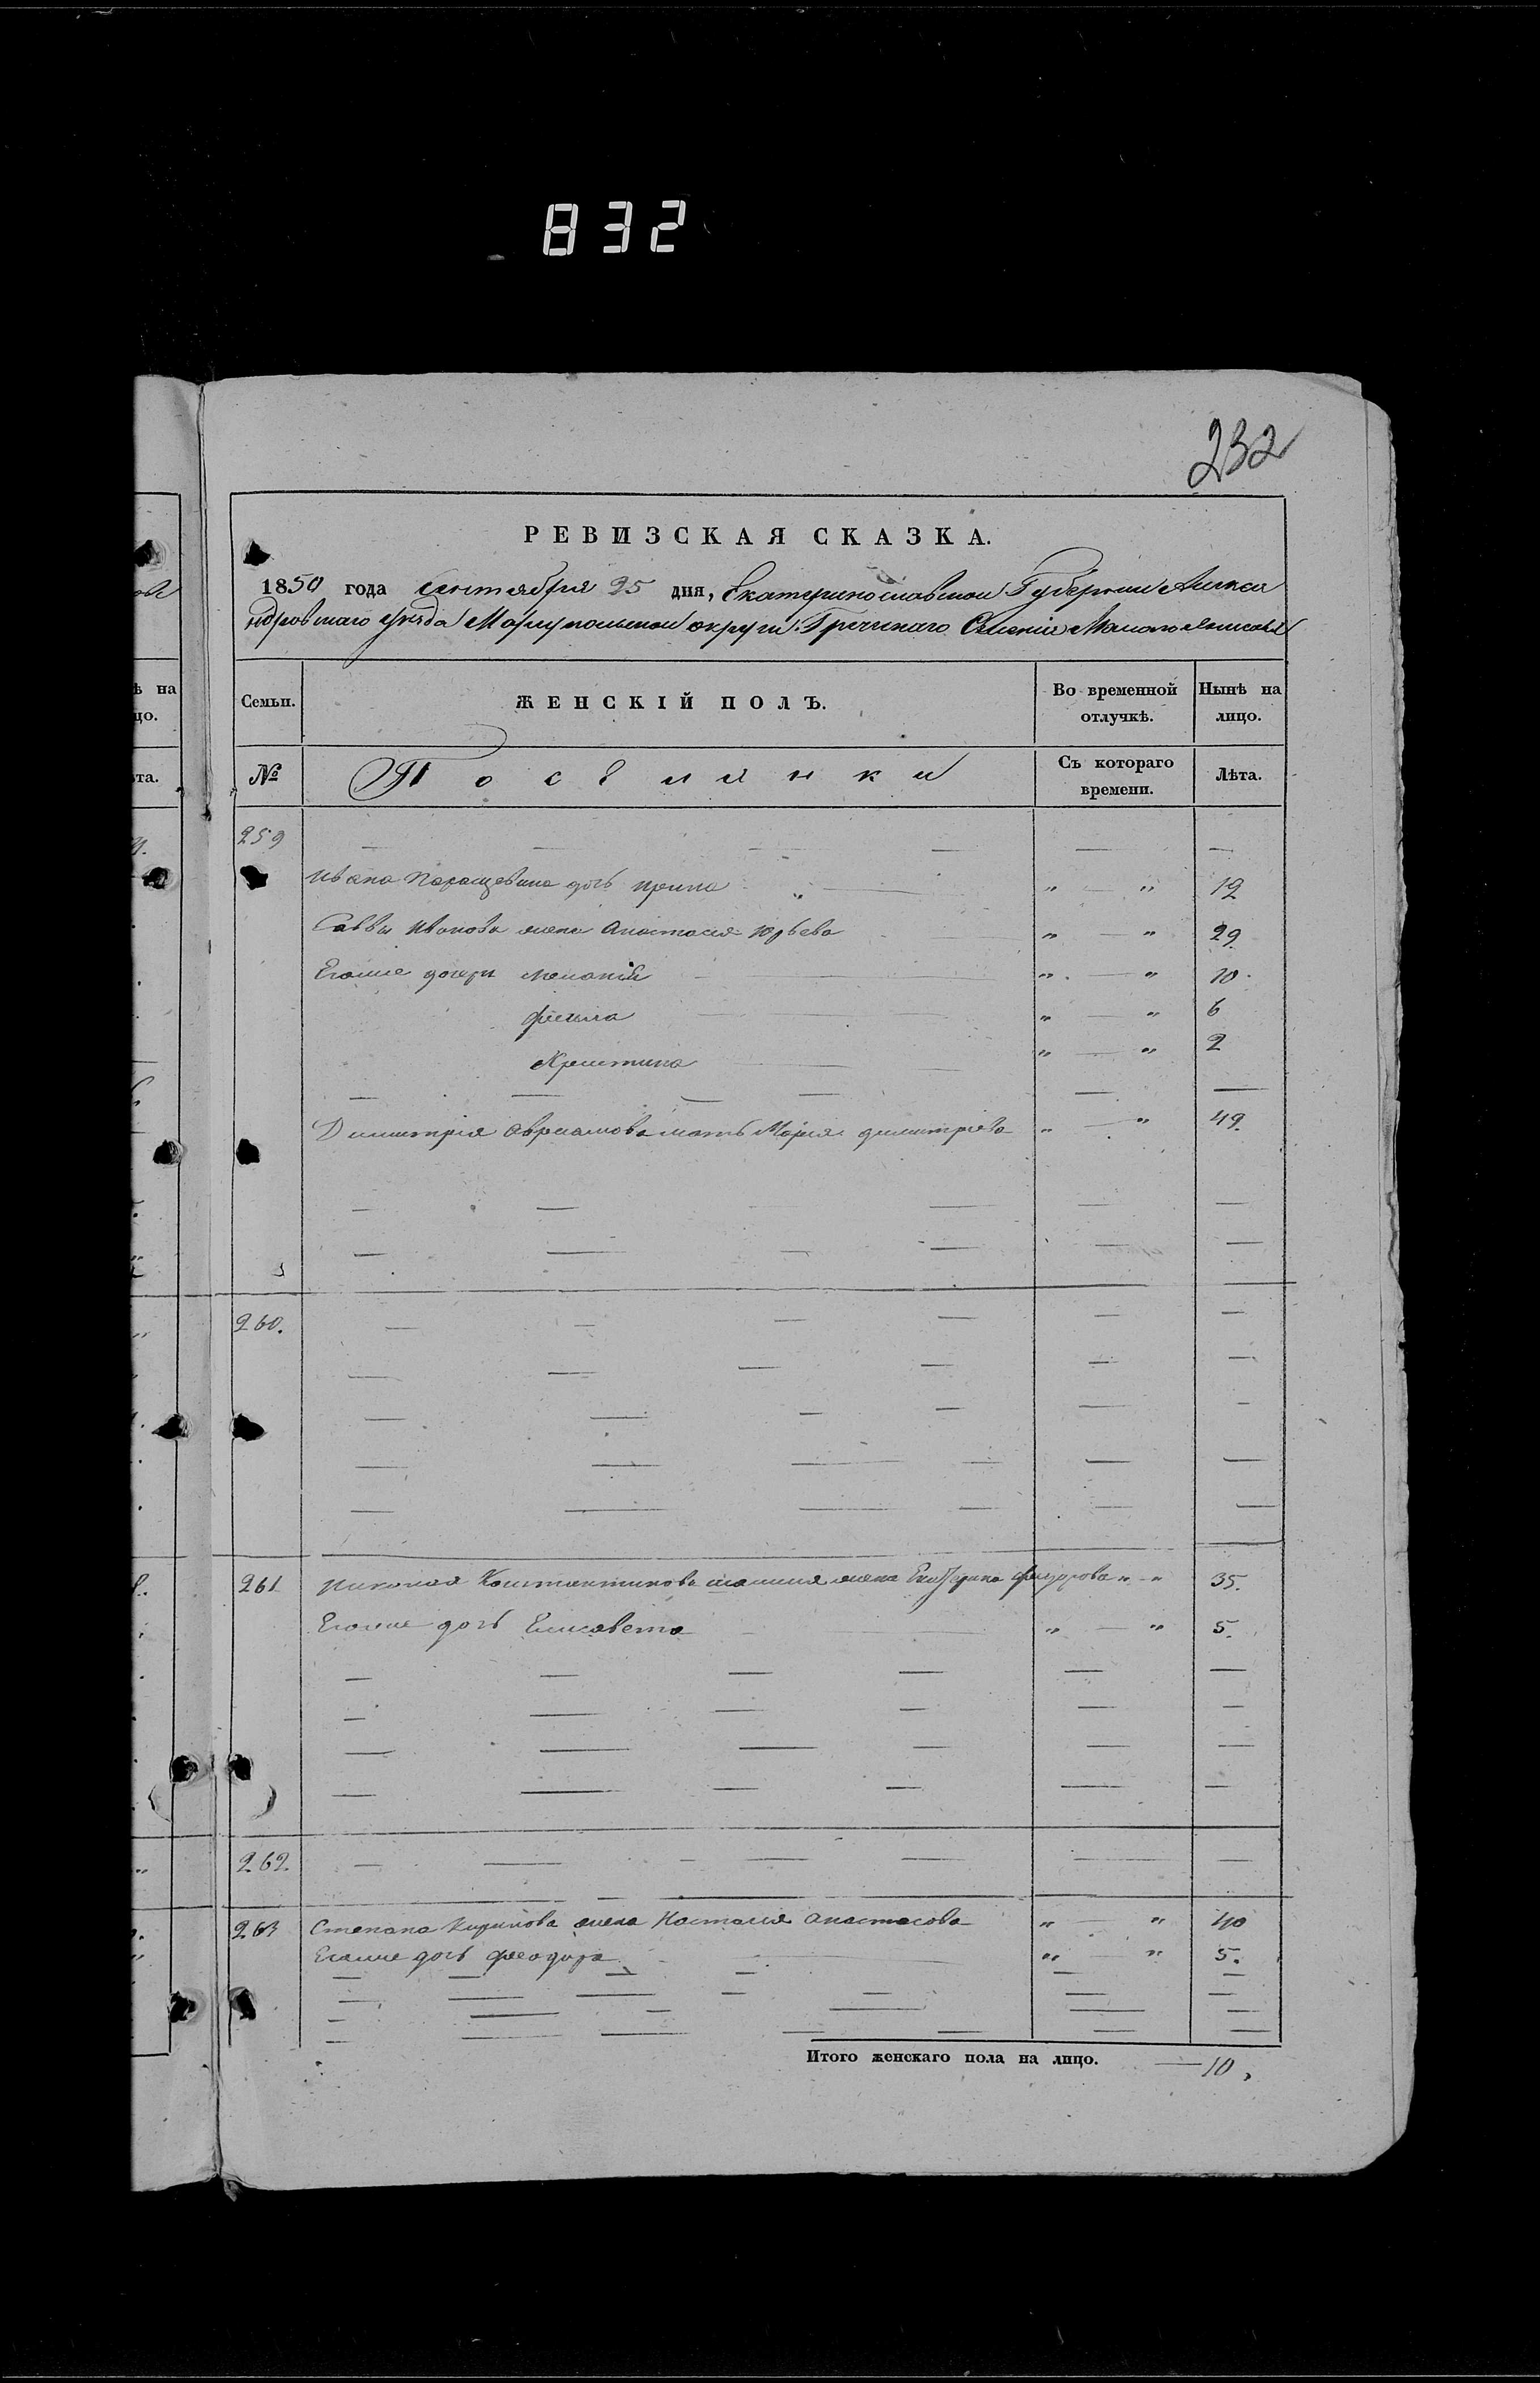 832
232
РЕВИЗСКАЯ СКАЗКА.
1850 года Сентября 25 дня, Екатеринославской Губернии Алекса
ндровскаго уѣзда Маріупольской округи Греческаго Селенія Малаго Янисоля
Семьи. ЖЕНСКІЙ ПОЛЪ. Во временной отлучкѣ. Нынѣ на лицо.
№ Поселянки Съ котораго времени. Лѣта.
259
Ивана дочь Ирина " — " 12
Саввы Иванова жена Анастасия Юрьева " — " 29.
Егоже дочери Меланія " — " 10.
" — " 6
Христина " — " 2
Димитрія Авраамова мать Марія Димитріева " — " 49.
260.
261 Николая Константинова жена Феодорова " - " 35.
Егоже дочь Елисавета " — " 5.
262.
263 Степана Кирикова жена Настасия Анастасова " — " 40
Егоже дочь Феодора " — " 5.
Итого женскаго пола на лицо. — 10,
ѣ на
цо.
та.